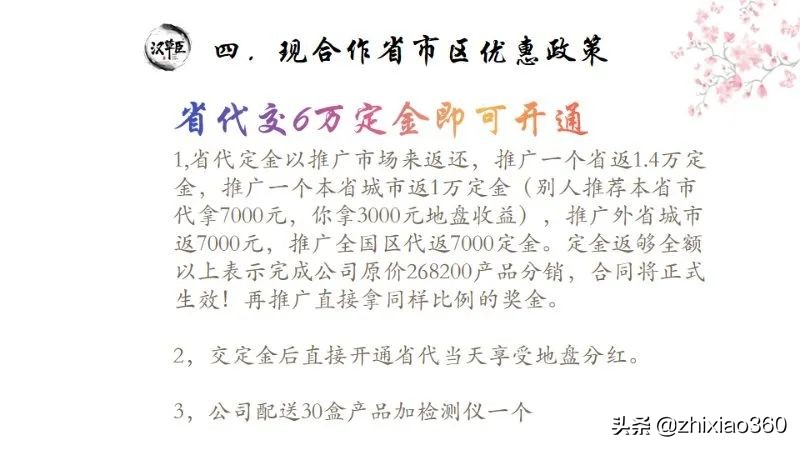 汉草臣
四．现合作省市区优惠政策
省代交6万定金即可开通
1,省代定金以推广市场来返还，推广一个省返1.4万定
金，推广一个本省城市返1万定金（别人推荐本省市
代拿7000元，你拿3000元地盘收益），推广外省城市
返7000元，推广全国区代返7000定金。定金返够全额
以上表示完成公司原价268200产品分销，合同将正式
生效！再推广直接拿同样比例的奖金。
2，交定金后直接开通省代当天享受地盘分红。
3，公司配送30盒产品加检测仪一个
头条 @zhixiao360